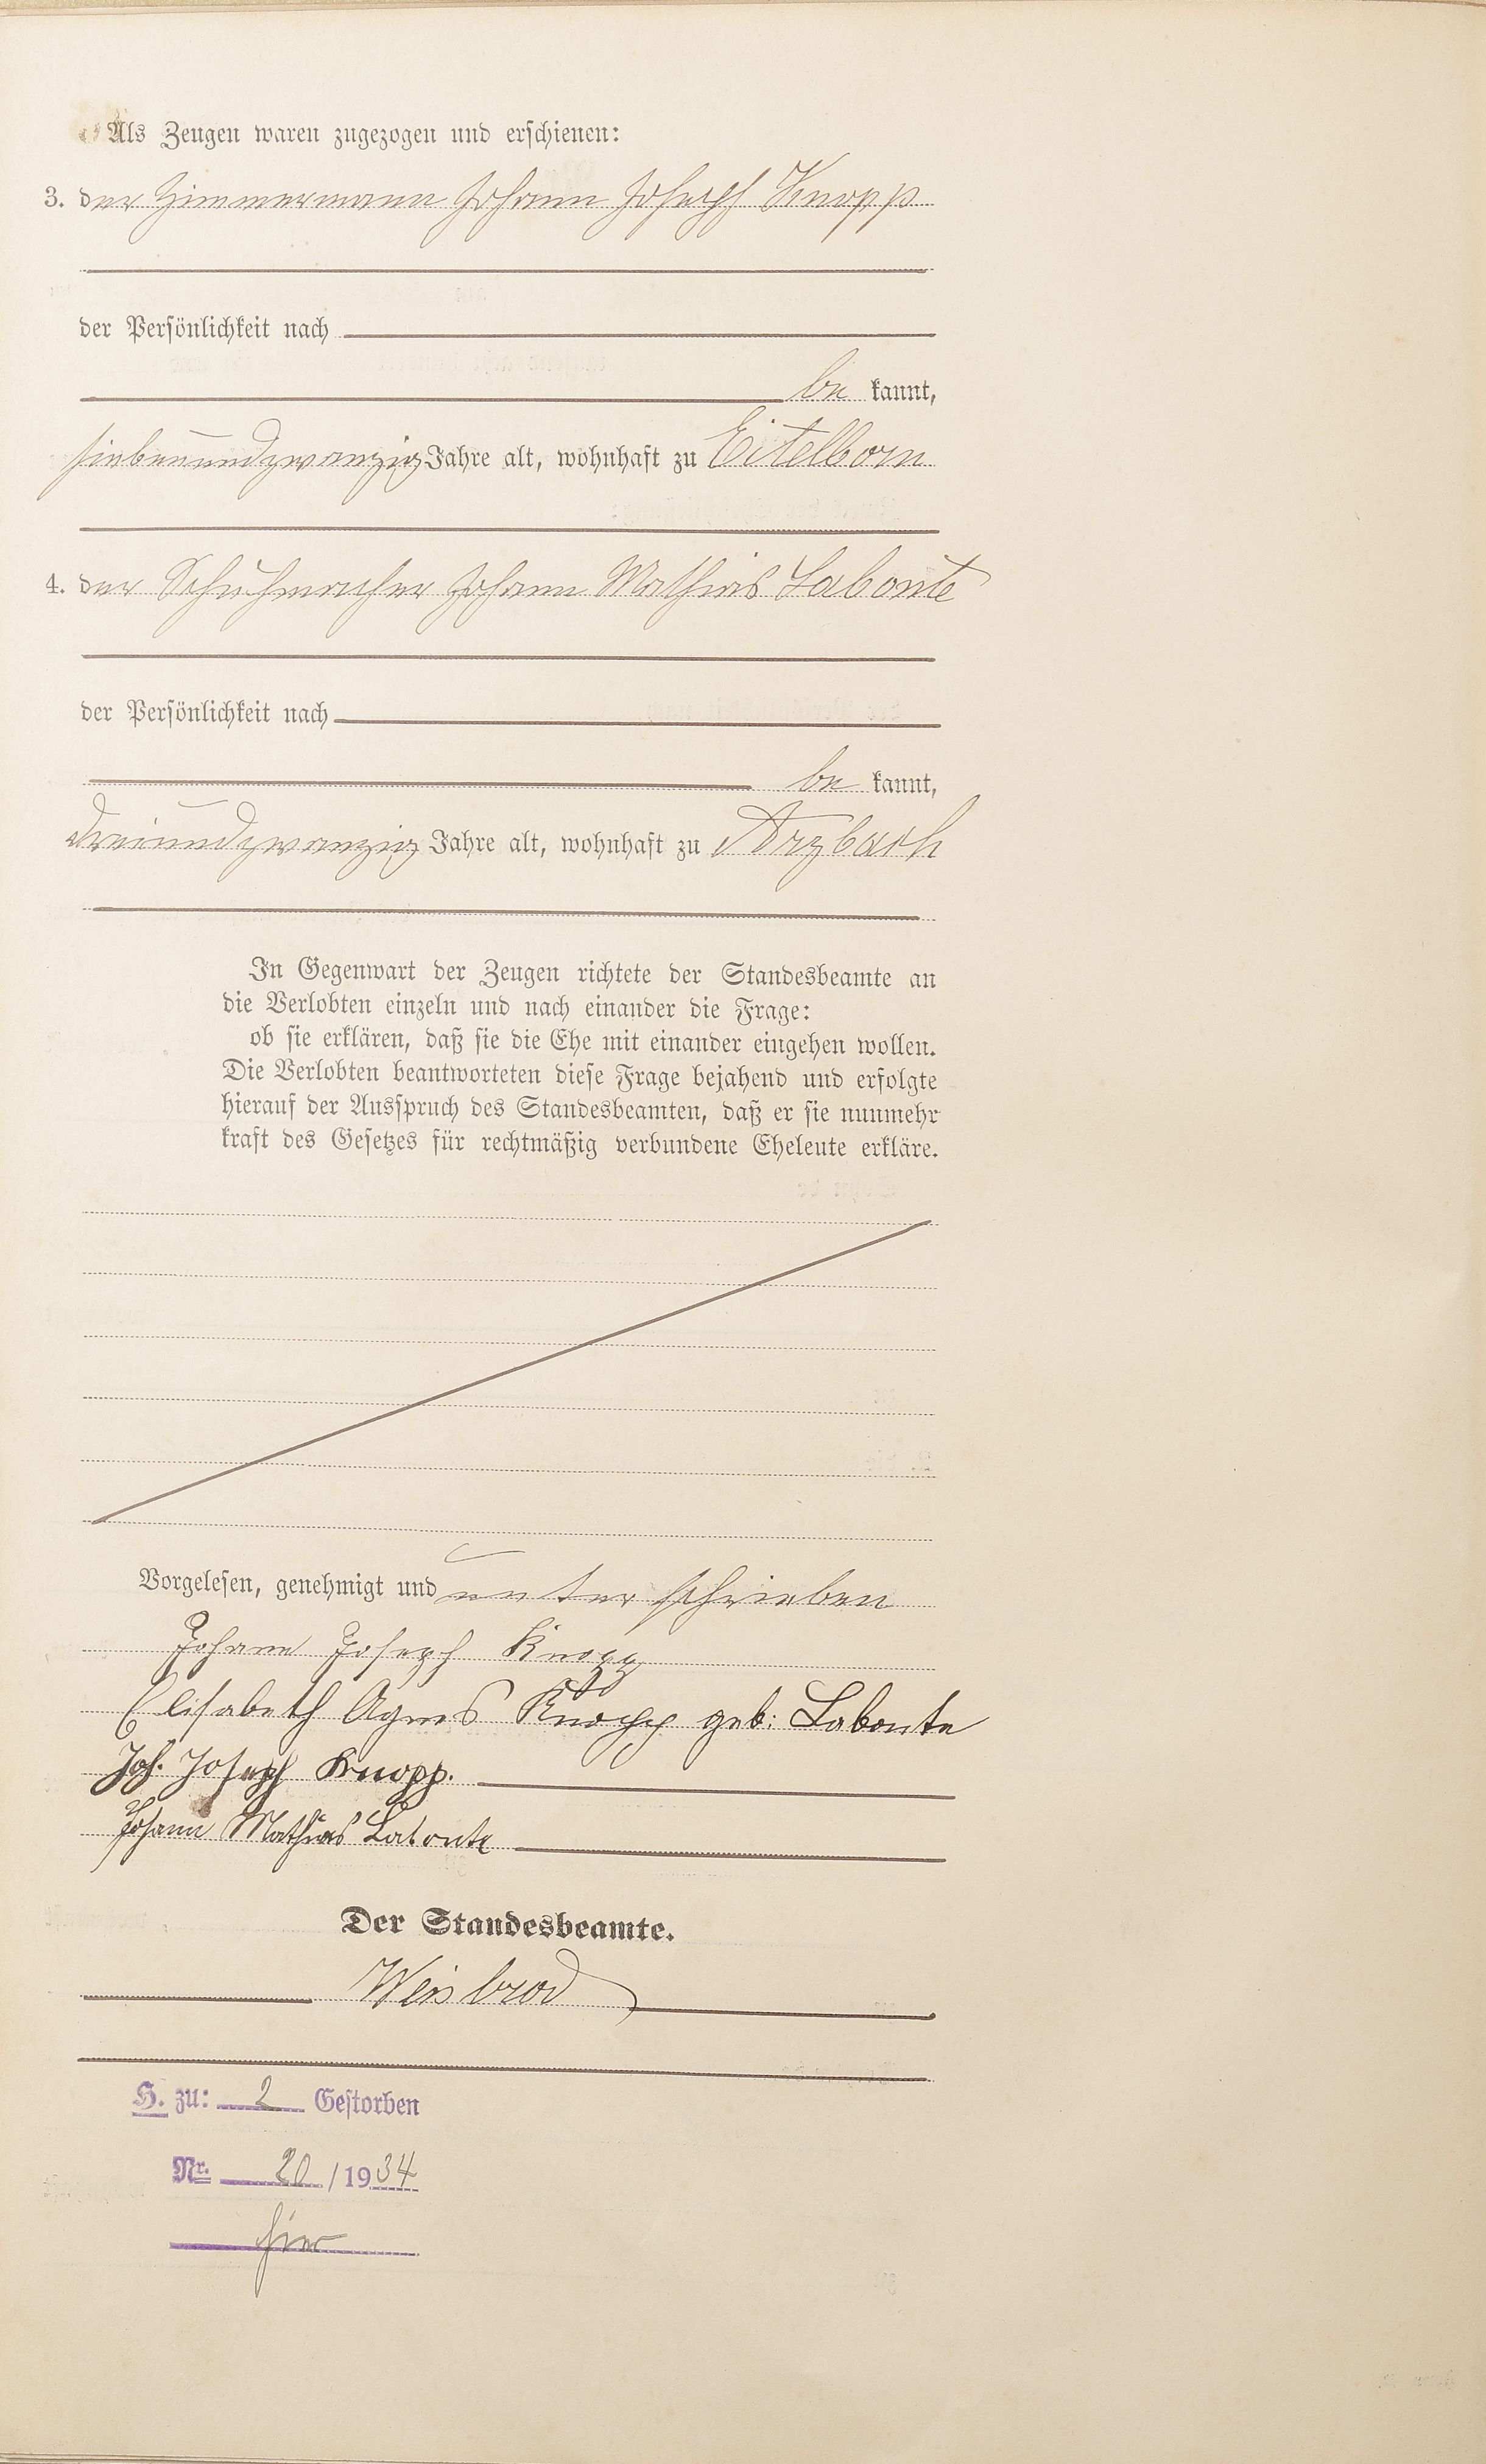 Als Zeugen waren zugezogen und erschienen:
3. der Zimmermann Johann Joseph Knopp
der Persönlichkeit nach
be kannt,
siebenundzwanzig Jahre alt, wohnhaft zu Eitelborn
4. der Schuhmacher Johann Mathias Labonte
der Persönlichkeit nach
be kannt,
dreiundzwanzig Jahre alt, wohnhaft zu Arzbach
In Gegenwart der Zeugen richtete der Standesbeamte an
die Verlobten einzeln und nach einander die Frage:
ob sie erklären, daß sie die Ehe mit einander eingehen wollen.
Die Verlobten beantworteten diese Frage bejahend und erfolgte
hierauf der Ausspruch des Standesbeamten, daß er sie nunmehr
kraft des Gesetzes für rechtmäßig verbundene Eheleute erkläre.
Vorgelesen, genehmigt und unterschrieben
Johann Joseph Knopp
Elisabeth Agnes Knopp geb: Labonte
Joh. Joseph Knopp.
Johann Mathias Labonte
Der Standesbeamte.
Weisbrod
H. zu: 2 Gestorben
Nr. 20 / 1934
hier